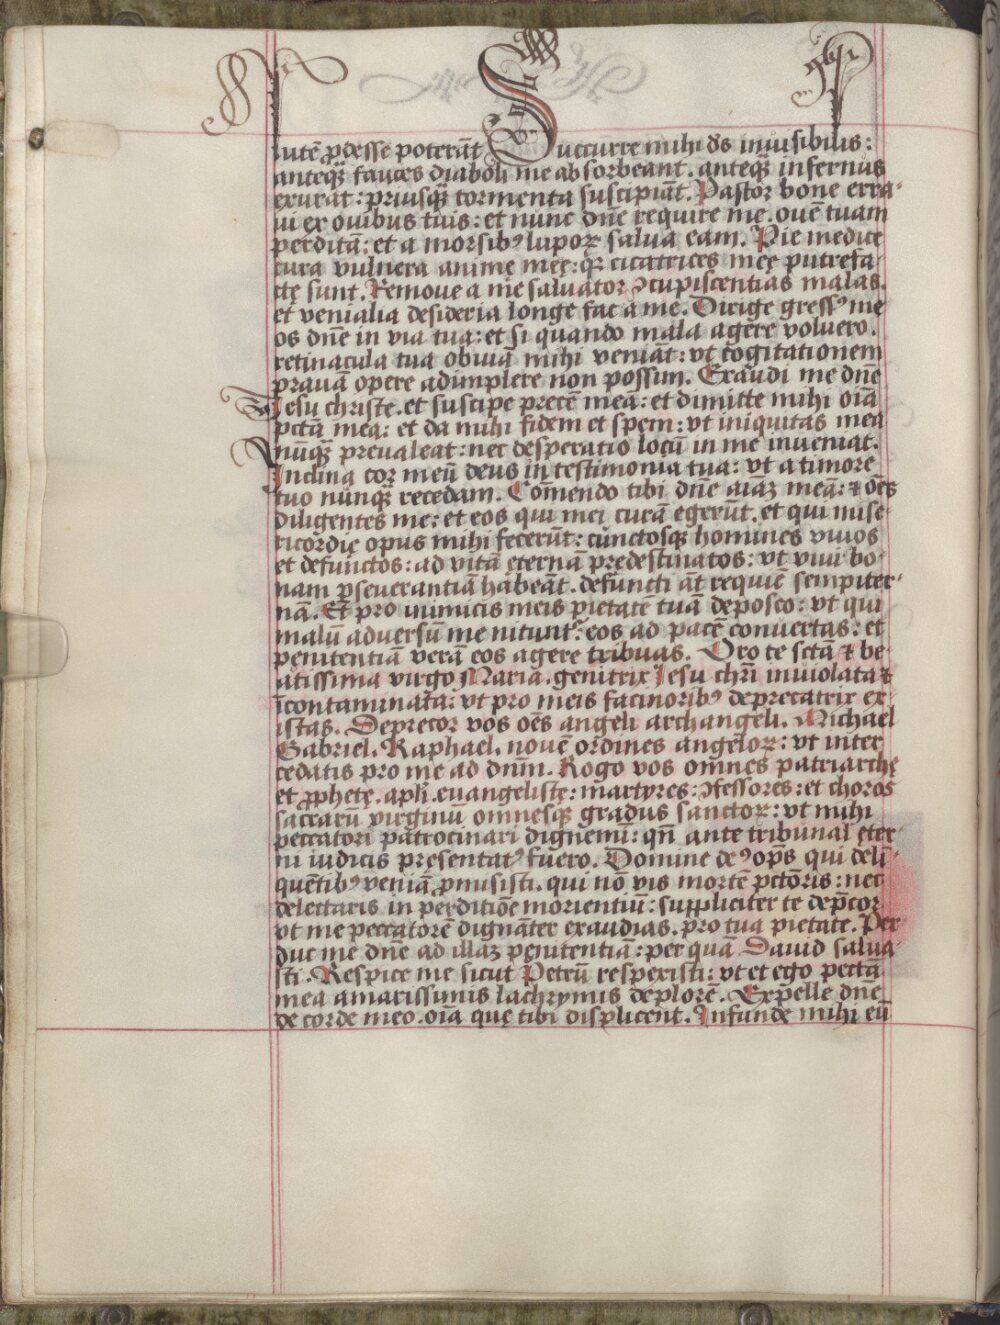 lutē ꝓdesse poterāt Succurre mihi ds̄ inuisibilis:
anteqꝫ fauces diaboli me absorbeant. anteqꝫ infernus
exurat: priusqꝫ tormenta suscipiāt. Pastor bone erra-
ui ex ouibus tuis: et nunc dn̄e require me. ouē tuam
perditā: et a morsibꝰ lupoꝝ salua eam. Pie medice
cura vulnera anime meę: qꝛ cicatrices meę putrefa-
ctę sunt. Remoue a me saluator ꝯcupiscentias malas.
et venialia desideria longe fac a me. Dirige gressꝰ me
os dn̄e in via tua: et si quando mala agere voluero.
retinacula tua obuiā mihi veniāt: vt cogitationem
prauā opere adimplere non possim. Exaudi me dn̄e
Jesu christe. et suscipe precē meā: et dimitte mihi oīa
pctā mea: et da mihi fidem et spem: vt iniquitas mea
nūqꝫ preualeat: nec desperatio locū in me inueniat.
Inclina cor meū deus in testimonia tua: vt a timore
tuo nunqꝫ recedam. Cōmendo tibi dn̄e aīaꝫ meā: ⁊ oēs
diligentes me: et eos qui mei curā egerūt. et qui mise-
ricordię opus mihi fecerūt: cunctosqꝫ homines viuos
et defunctos: ad vitā eternā predestinatos: vt viui bo-
nam ꝑseuerantiā habeāt. defuncti āt requiē sempiter-
nā. Et pro inimicis meis pietatē tuā deposco: vt qui
malū aduersū me nitunt᷑: eos ad pacē conuertas: et
penitentiā verā eos agere tribuas. Oro te sctā ⁊ be-
atissima virgo Maria. genitrix Jesu chrī inuiolata ⁊
īcontaminata: vt pro meis facinoribꝰ deprecatrix ex-
istas. Deprecor vos oēs angeli archangeli. Michael
Gabriel. Raphael. nouē ordines angeloꝝ: vt inter
cedatis pro me ad dnm̄. Rogo vos omnes patriarchę
et ꝓphetę. apłi. euangelistę: martyres: ꝯfessores: et choros
sacrarū virginū omnesqꝫ gradus sanctoꝝ: vt mihi
peccatori patrocinari dignemī: qn̄ ante tribunal eter-
ni iudicis presentatꝰ fuero. Domine deꝰ opˉs qui deli-
quētibꝰ veniā ꝓmisisti. qui nō vis mortē pctōris: nec
delectaris in perditiōe morientiū: suppliciter te dep̄cor
vt me peccatorē dignāter exaudias. pro tua pietate. Per
duc me dn̄e ad illaꝫ penitentiā: per quā Dauid salua-
sti. Respice me sicut Petrū respexisti: vt et ego peccā
mea amarissimis lachrymis deplorē. Expelle dn̄e
de corde meo. oīa quę tibi displicent. Infunde mihi eū